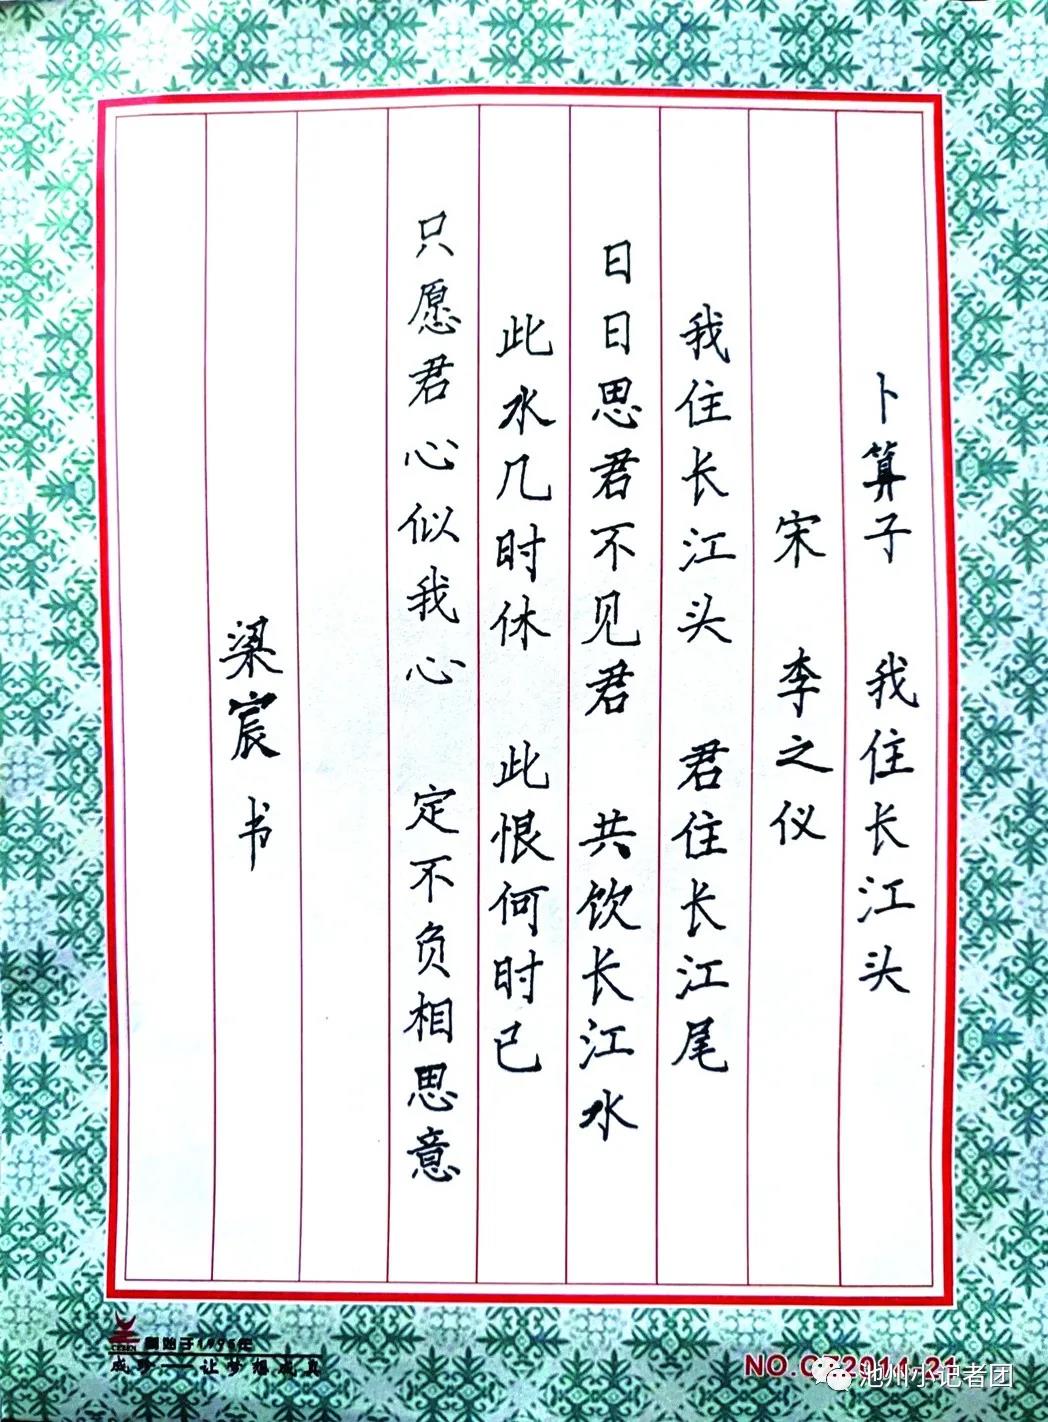 卜算子 我住长江头
宋 李之仪
我住长江头 君住长江尾
日日思君不见君 共饮长江水
此水几时休 此恨何时已
只愿君心似我心 定不负相思意
梁宸书
始于1995年
成 让梦想成真
NO.CZ2011-21
池州小记者团